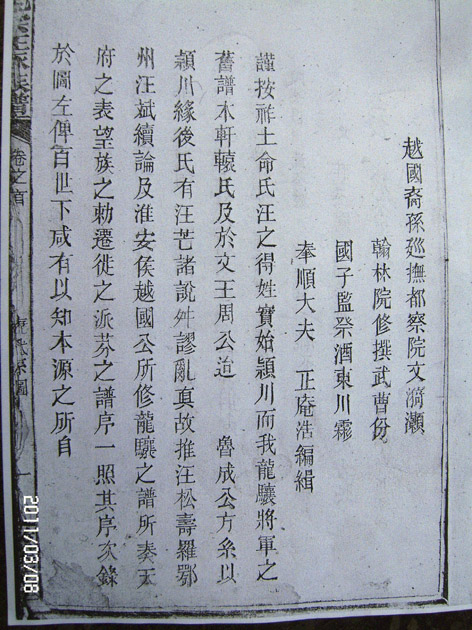 越國裔孫廵撫都察院文漪灝
翰林院修撰武曹份
國子監祭酒東川霦
奉順大夫 正庵浩編緝
謹按祚土命氏汪之得姓實始潁川而我龍驤將軍之
舊譜本軒轅氏及於文王周公迨 魯成公方系以
潁川緣後氏有汪芒諸說舛謬亂真故推汪松壽羅鄂
州汪斌續論及淮安侯越國公所修龍驤之譜所奏天
府之表望族之勅遷徙之派芬之譜序一照其序次錄
於圖左俾百世下咸有以知本源之所自
汪氏族譜
卷之首
系圖
一
2011/03/08